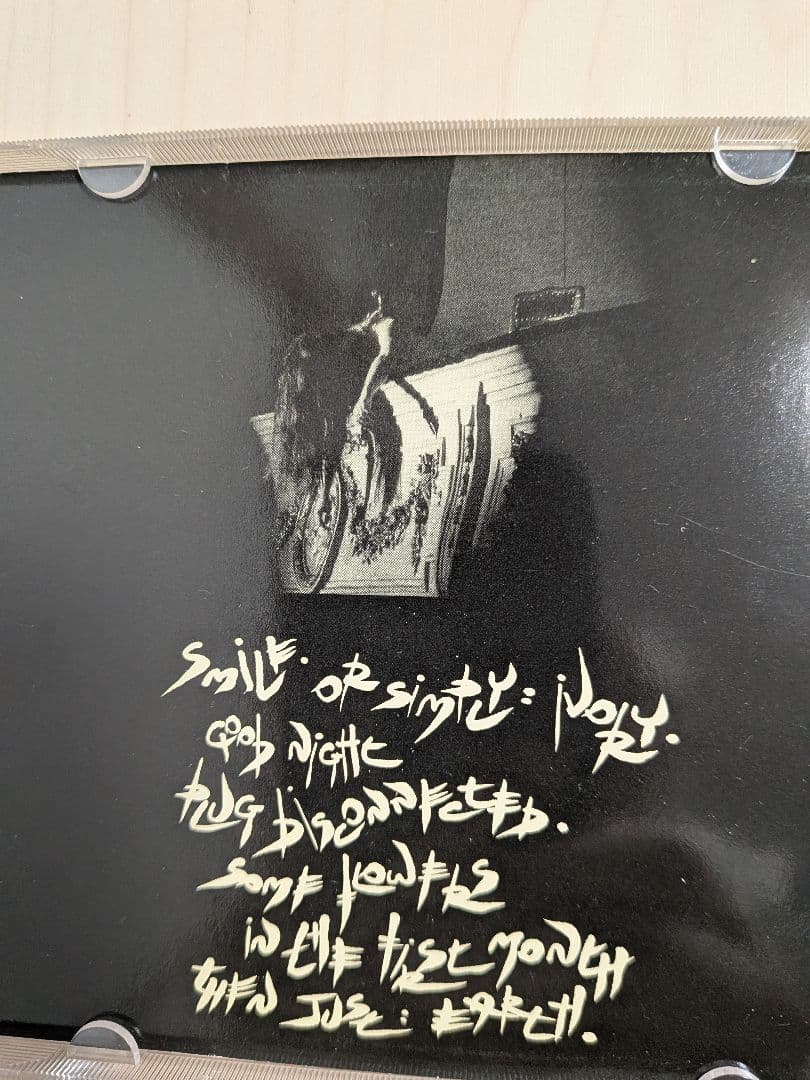 SMILE. OR SIMPLY: IVORY.
GOOD NIGHT
PLUG DISCONNECTED.
SOME FLOWERS
IN THE FIRST MONTH
THEN JUST: EARTH.